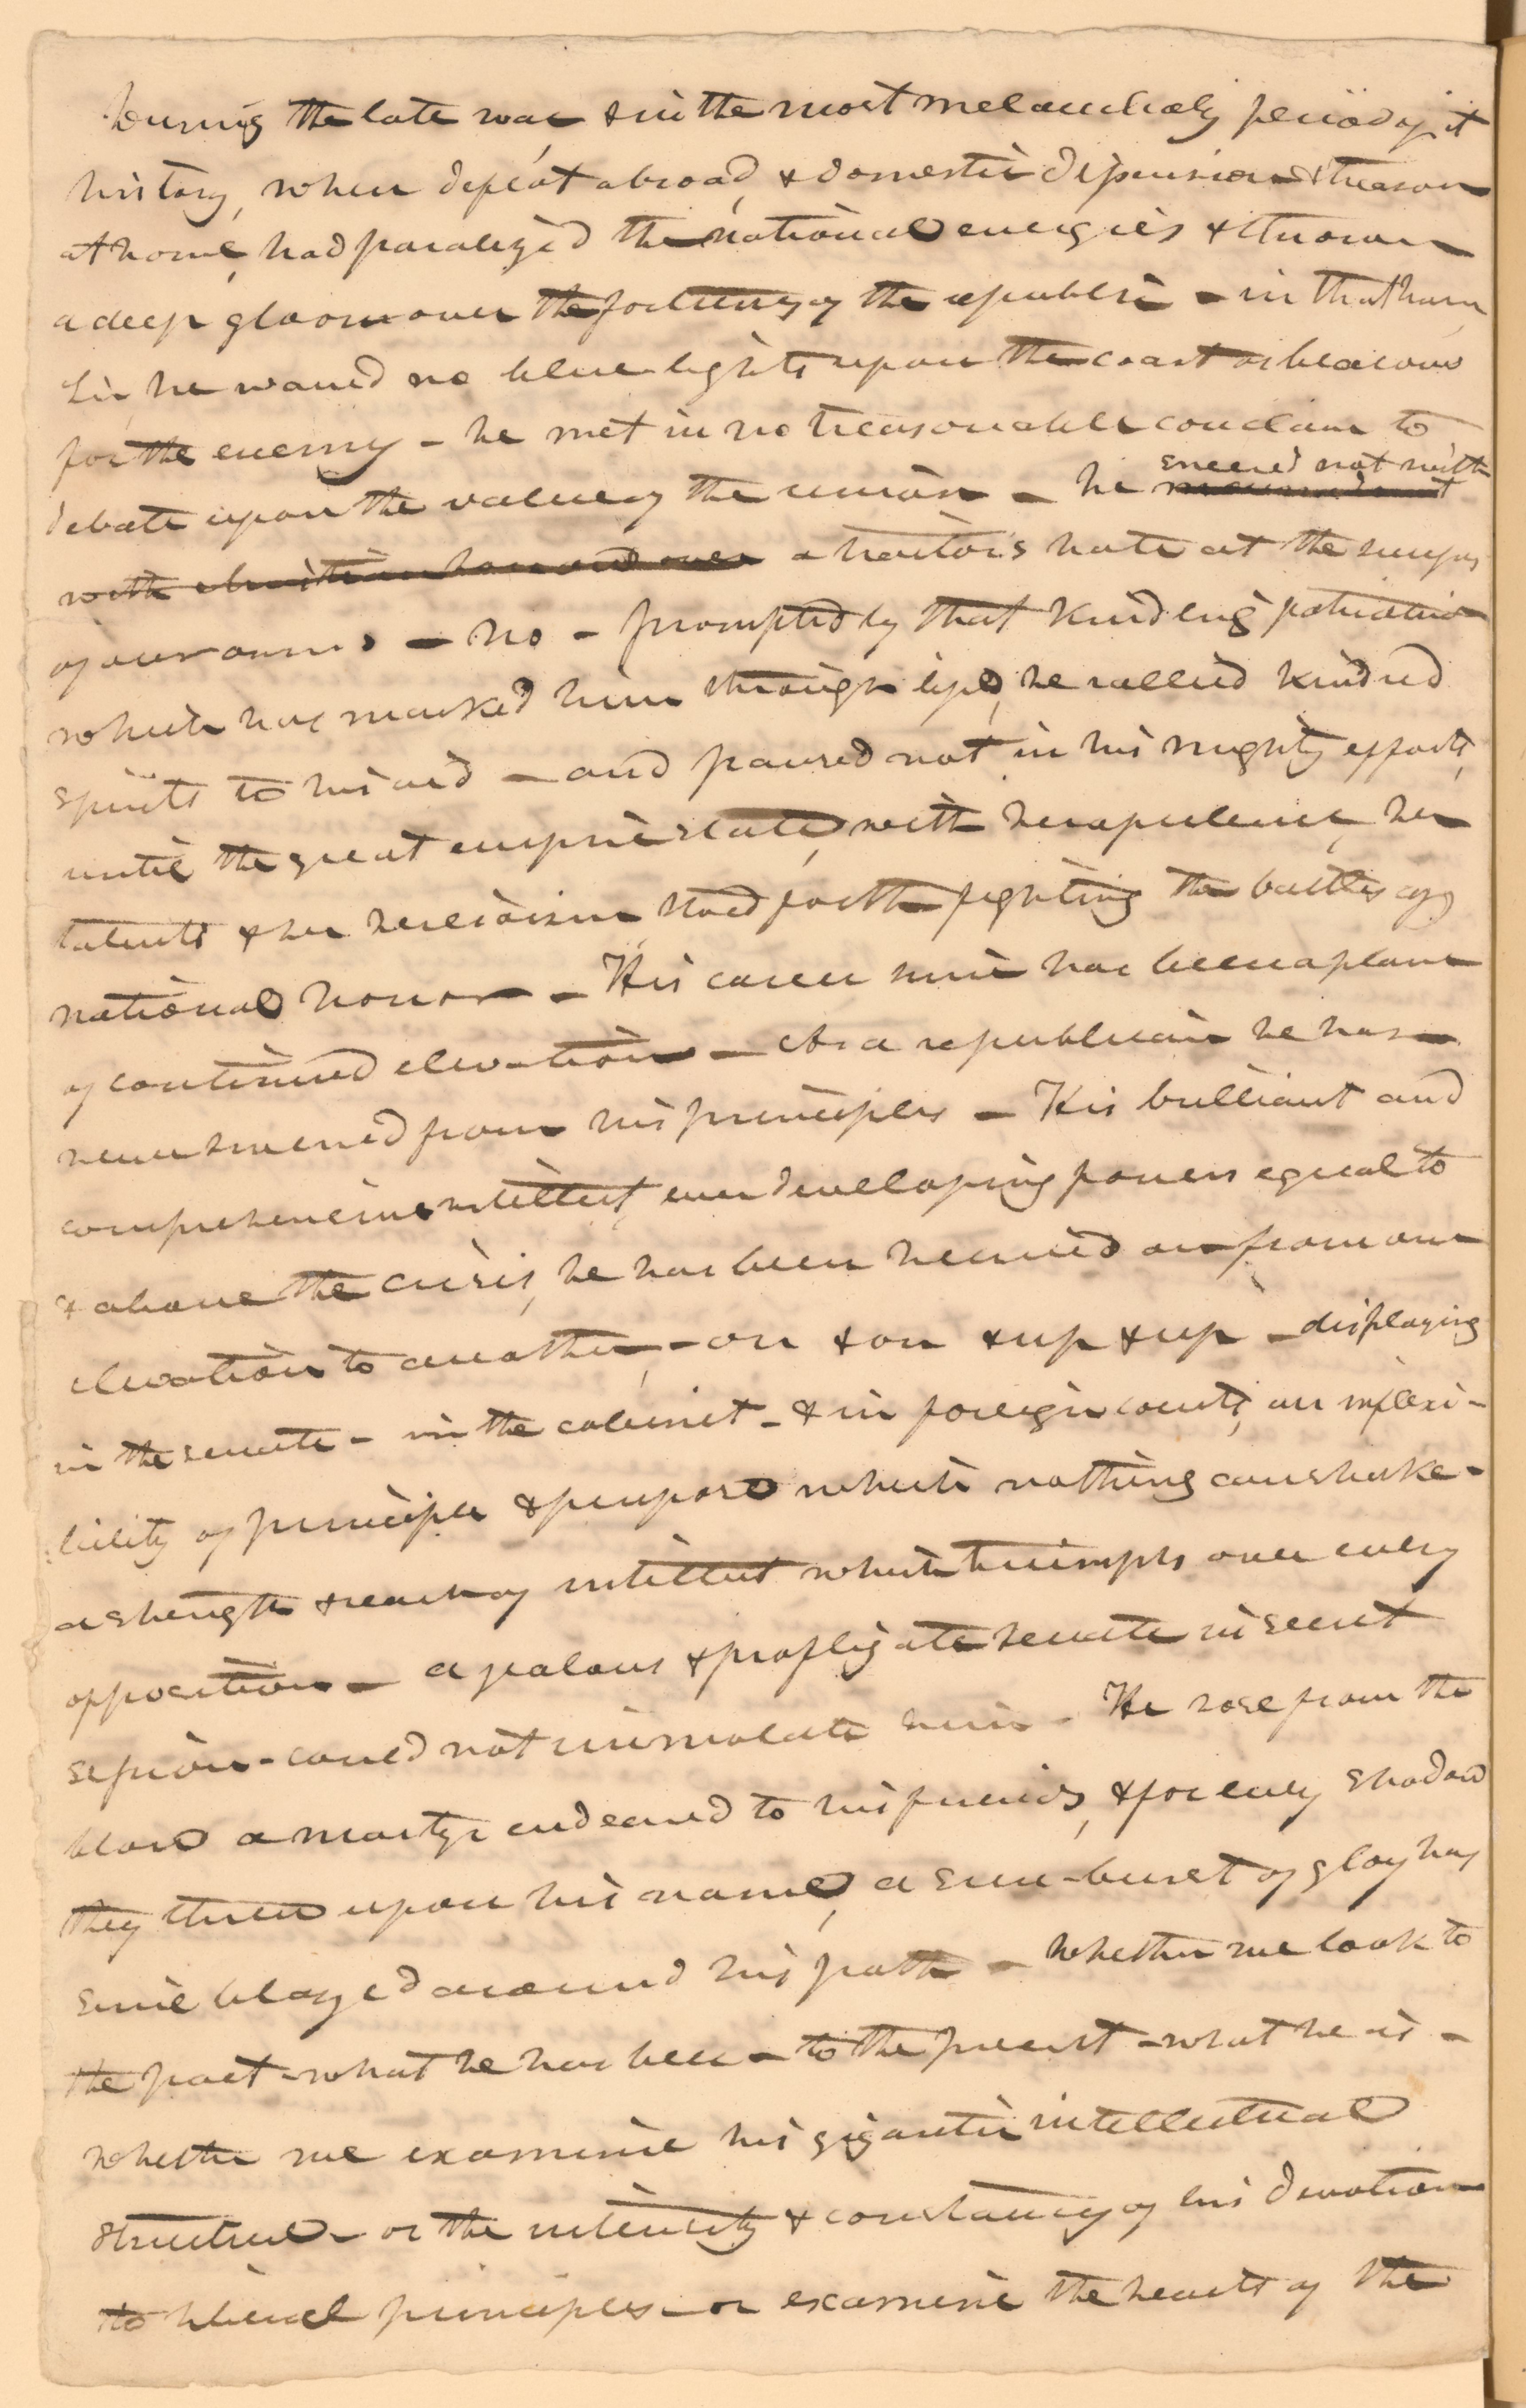 During the late war & in the most melancholy period of it
history, when defeat abroad, & domestic dissension & treason
at home, had paralized the national energies & thrown
a deep gloom over the fortunes of the republic - in that hour,
Sir, he waved no blue lights upon the coast as beacons
for the enemy - he met in no treasonable conclave to
debate upon the value of the union - he
sneered not with
with christian horror over a traitor's hate at the success
of our arms - no - prompted by that kindling patriotism
which has marked him through life, he rallied kindred
spirits to his aid - and paused not in his mighty efforts,
until the great empire state, with her opulence, her
talents & her heroism stood forth fighting the battles of
national honor - His career since has been a plane
of continued elevation - As a republican he has
never swerved from his principles - His brilliant and
comprehensive intellect, ever developing powers equal to
& above the crisis, he has been hurried on from one
elevation to another, - on & on & up & up - displaying
in the senate - in the cabinet - & in foreign courts, an inflexi-
bility of principle & purpose which nothing can shake -
a strength & reach of intellect which triumphs over every
opposition - a jealous & profligate senate in secret
session - could not immolate him - He rose from the
blow a martyr endeared to his friends, & for every shadow
they threw upon his name, a sun-burst of glory has
since blazed around his path - whether we look to
the past - what he has been - to the present - what he is -
whether we examine his gigantic intellectual
structure - or the intensity & constancy of his devotion
to liberal principles - or examine the hearts of the